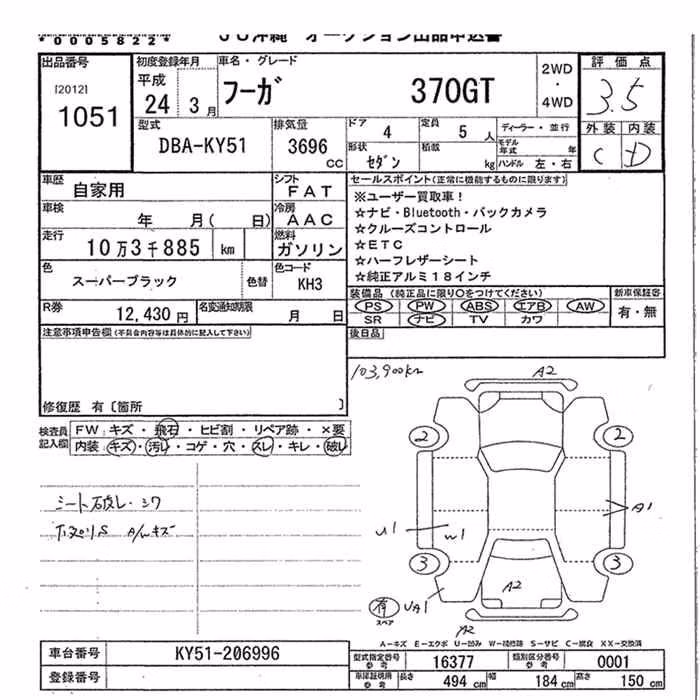 *0005822* JU沖縄 オークション出品申込書
出品番号 初度登録年月 車名・グレード 評価点
[2012] 平成 フーガ 370GT 2WD・4WD 3.5
1051 24 3月
外装 内装
C D
型式 排気量 ドア 4 定員 5 人 ディーラー・並行
DBA-KY51 3696 CC 形状 セダン 積載 kg モデル年式 年
ハンドル 左・右
車歴 自家用 シフト FAT
車検 年 月(日) 冷房 AAC
走行 10万3千885 km 燃料 ガソリン
色 スーパーブラック 色替 色コード KH3
R券 12,430円 名変通知期限 月 日
セールスポイント(正常に機能するものに限ります)
※ユーザー買取車!
☆ナビ・Bluetooth・バックカメラ
☆クルーズコントロール
☆ETC
☆ハーフレザーシート
☆純正アルミ18インチ
装備品(純正品に限り○をつけてください) 新車保証書
PS PW ABS エアB AW 有・無
SR ナビ TV カワ
後日品
注意事項申告欄(不具合内容等は具体的に記入して下さい)
修復歴 有〔箇所 〕
検査員記入欄 FW:キズ・飛石・ヒビ割・リペア跡・×要
内装:キズ・汚レ・コゲ・穴・スレ・キレ・破レ
シート破レ・シワ
A/Wキズ
103,900km
A2
2 2
A1
U1 W1
3 3
A2
有 スペア UA1
A2
A-キズ E-エクボ U-凹み W-補修跡 S-サビ C-腐食 XX-交換済
車台番号 KY51-206996
登録番号
型式指定番号 参考 16377 類別区分番号 参考 0001
車庫証明用 参考 長さ 494 cm 幅 184 cm 高さ 150 cm